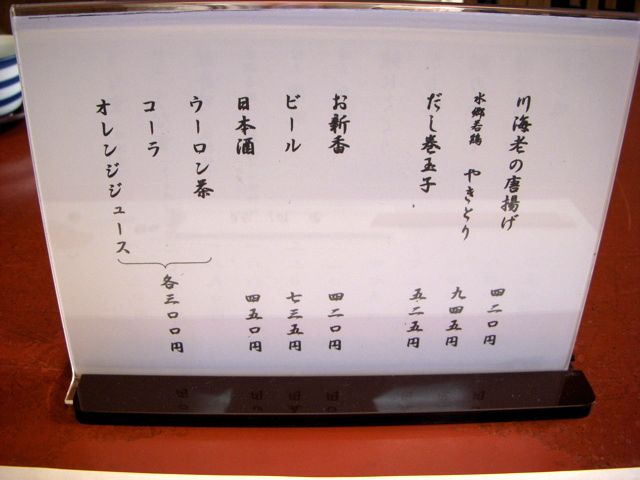 川海老の唐揚げ 四二〇円
水郷若鶏 やきとり 九四五円
だし巻玉子 五二五円
お新香 四二〇円
ビール 七三五円
日本酒 四五〇円
ウーロン茶
コーラ
オレンジジュース
各三〇〇円